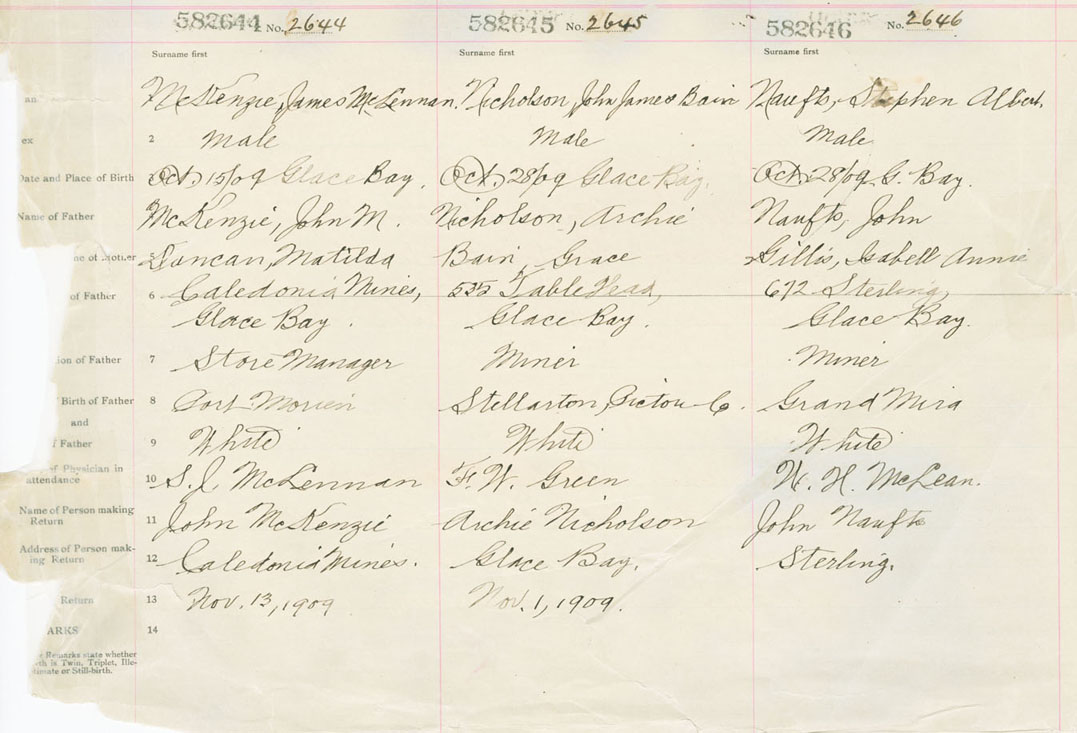 582644 No. 2644 582645 No. 2645 582646 No. 2646
Surname first Surname first Surname first
McKenzie, James McLennan. Nicholson, John James Bain Naufts, Stephen Albert.
ex 2 Male Male Male
Date and Place of Birth 3 Oct. 15/09 Glace Bay. Oct. 28/09 Glace Bay. Oct. 28/09. G. Bay.
Name of Father McKenzie, John M. Nicholson, Archie Naufts, John
me of Mother 5 Duncan, Matilda Bain, Grace Gillis, Isabell Annie
of Father 6 Caledonia Mines, 535 Table Head, 672 Sterling,
Glace Bay. Glace Bay. Glace Bay.
ion of Father 7 Store Manager Miner Miner
Birth of Father 8 Port Morien Stellarton, Pictou Co. Grand Mira
and
f Father 9 White White White
of Physician in
attendance 10 S. J. McLennan F. W. Green W. H. McLean.
Name of Person making
Return 11 John McKenzie Archie Nicholson John Naufts
Address of Person mak-
ing Return 12 Caledonia Mines. Glace Bay. Sterling.
Return 13 Nov. 13, 1909 Nov. 1, 1909.
ARKS 14
Remarks state whether
th is Twin, Triplet, Ille-
timate or Still-birth.